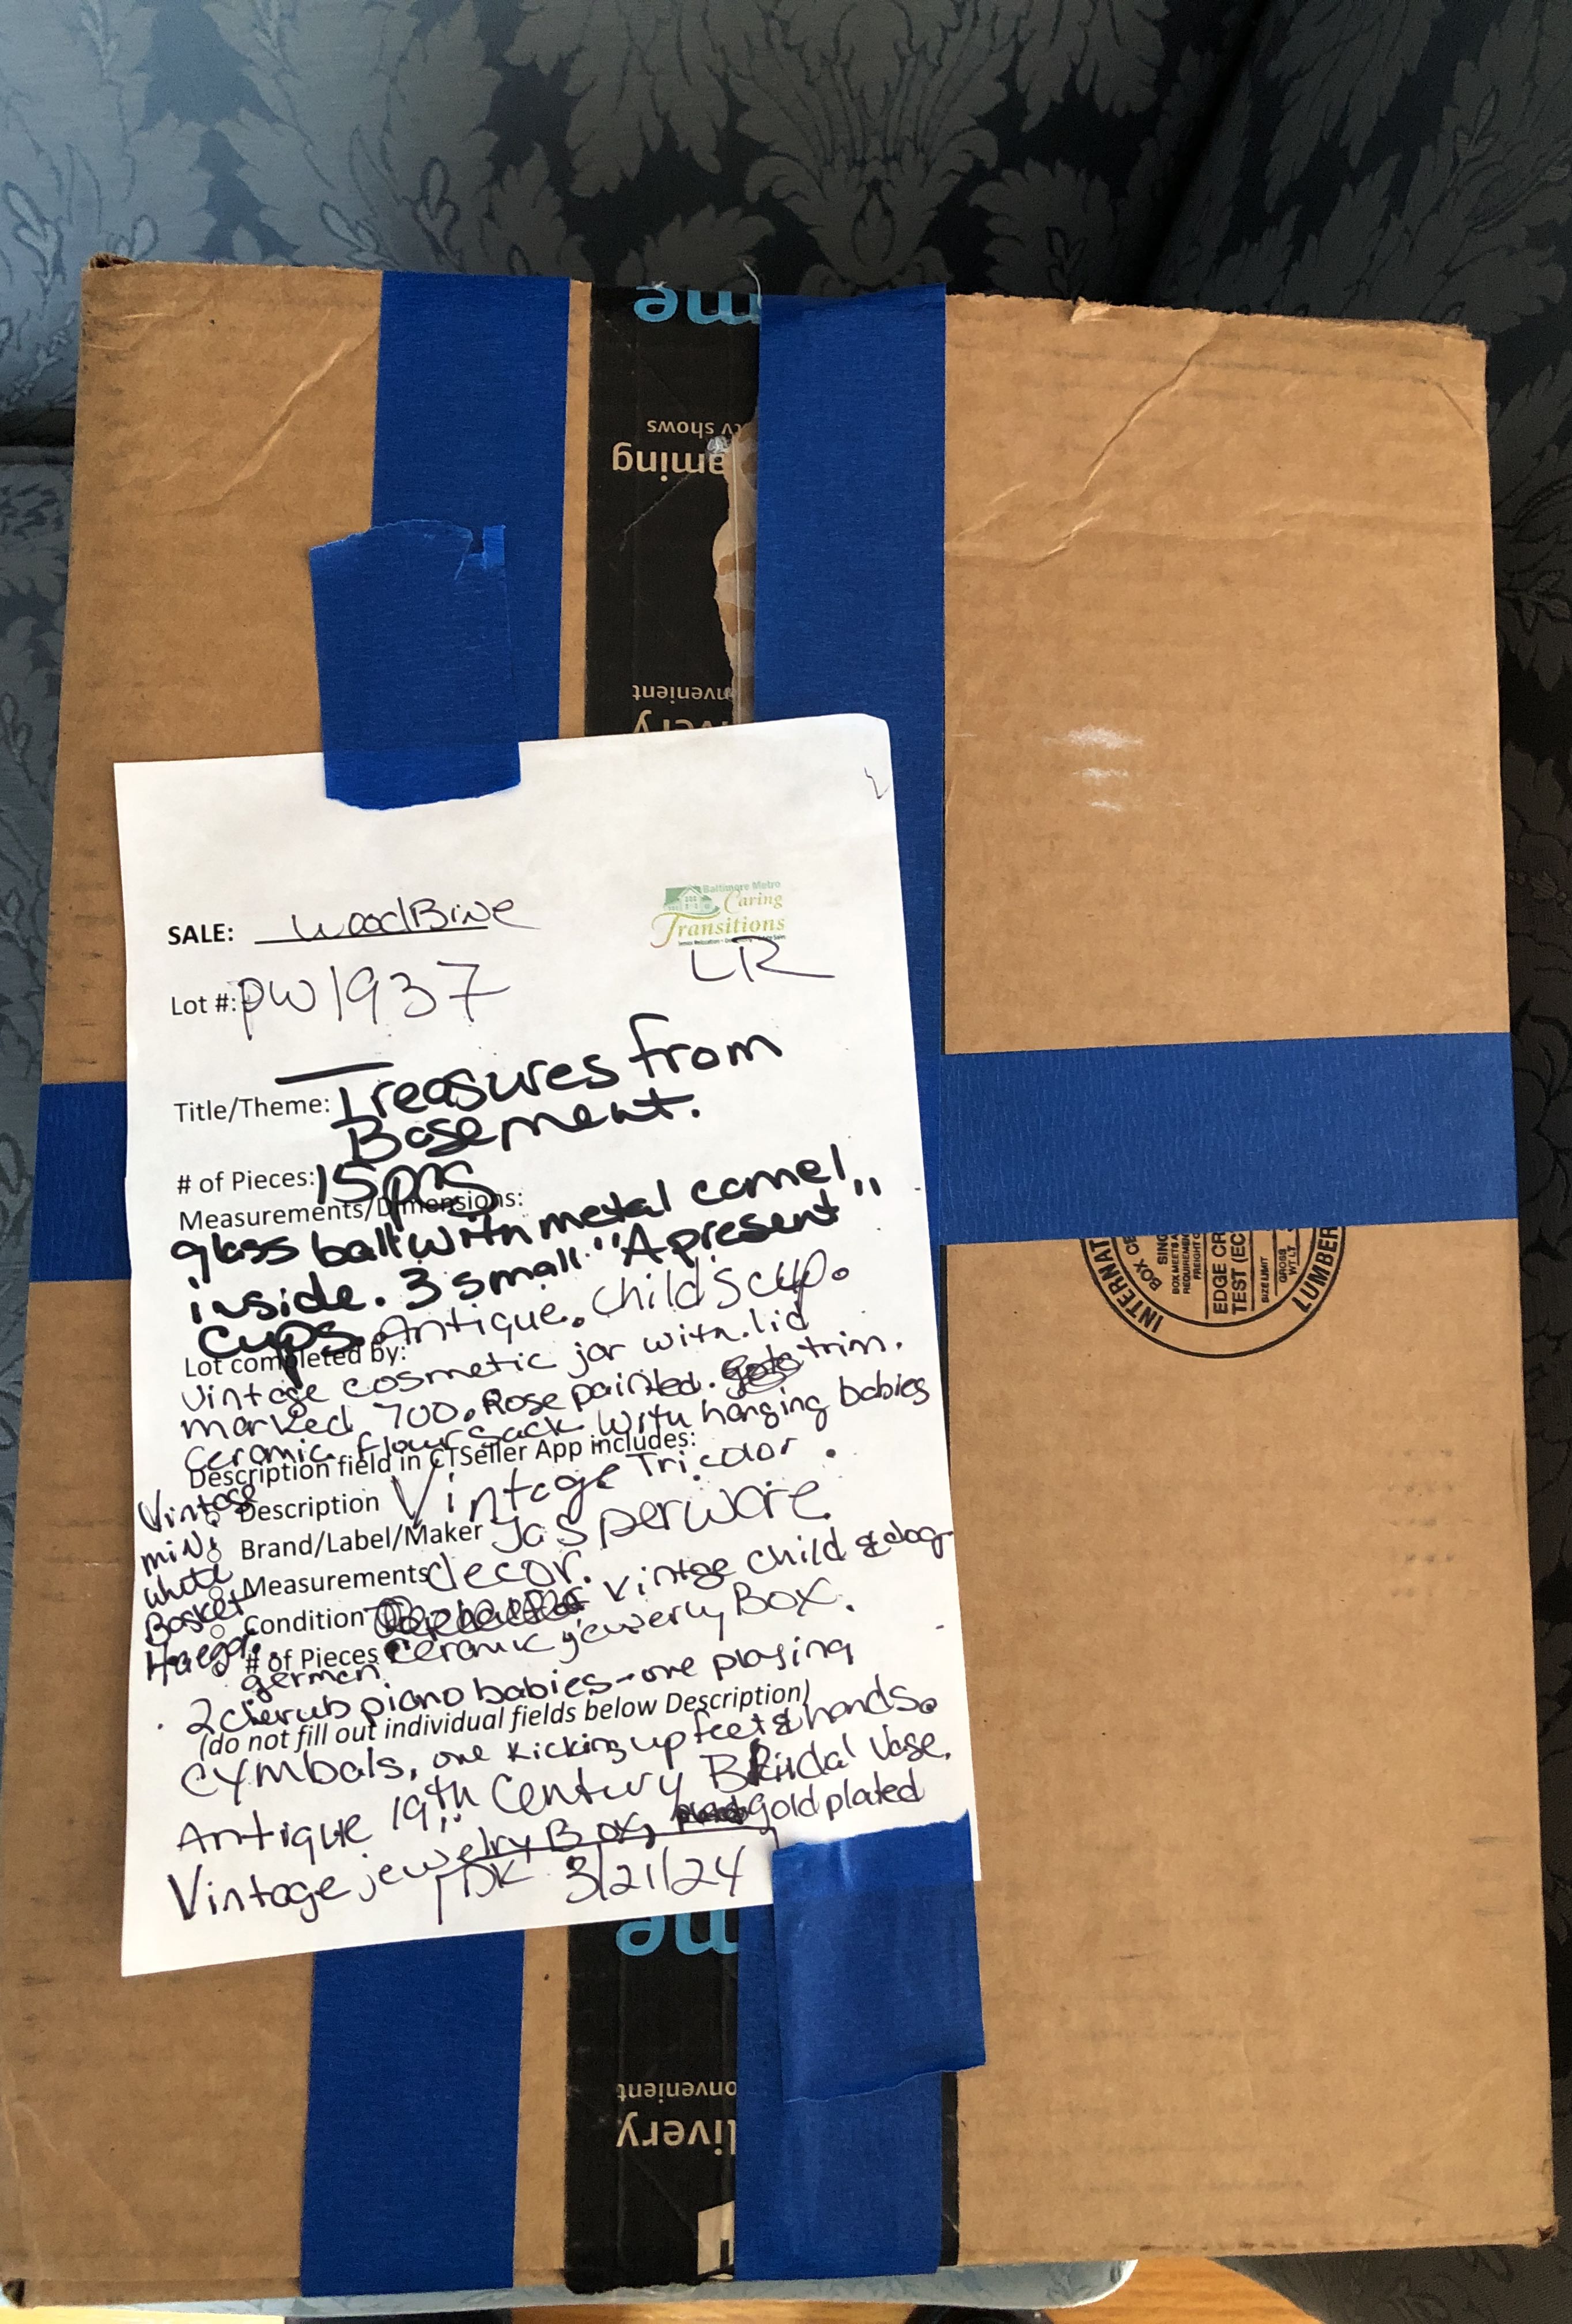 me
tv shows
aming
nvenient
very
SALE: WoodBine
Baltimore Metro
Caring
Transitions
LR
Lot #: PW1937
Title/Theme: Treasures from
Basement.
# of Pieces: 15 pcs
Measurements/Dimensions:
glass ball with metal camel
inside. 3 small "A present"
cups. Antique. Childs cup.
Lot completed by:
Vintage cosmetic jar with lid
marked 700. Rose painted. trim.
Ceramic flour sack with hanging babies
Description field in CTSeller App includes:
Vintage Tricolor.
Description
Jasperware
Brand/Label/Maker
decor.
Measurements
Vintge child & dog
Condition
ceramic jewerly Box.
# of Pieces
Vintage
mini
white
Basket
Haegar.
german
2 cherub piano babies - one playing
(do not fill out individual fields below Description)
cymbals, one kicking up feet & hands.
Antique 19th Century Bridal Vase.
Vintage jewelry Box, gold plated
PDK 3/21/24
INTERNAT
BOX CE
SING
BOX MEETS A
REQUIREMEN
FREIGHT C
EDGE CR
TEST (EC
SIZE LIMIT
GROSS
WT LT
LUMBER
me
onvenient
livery